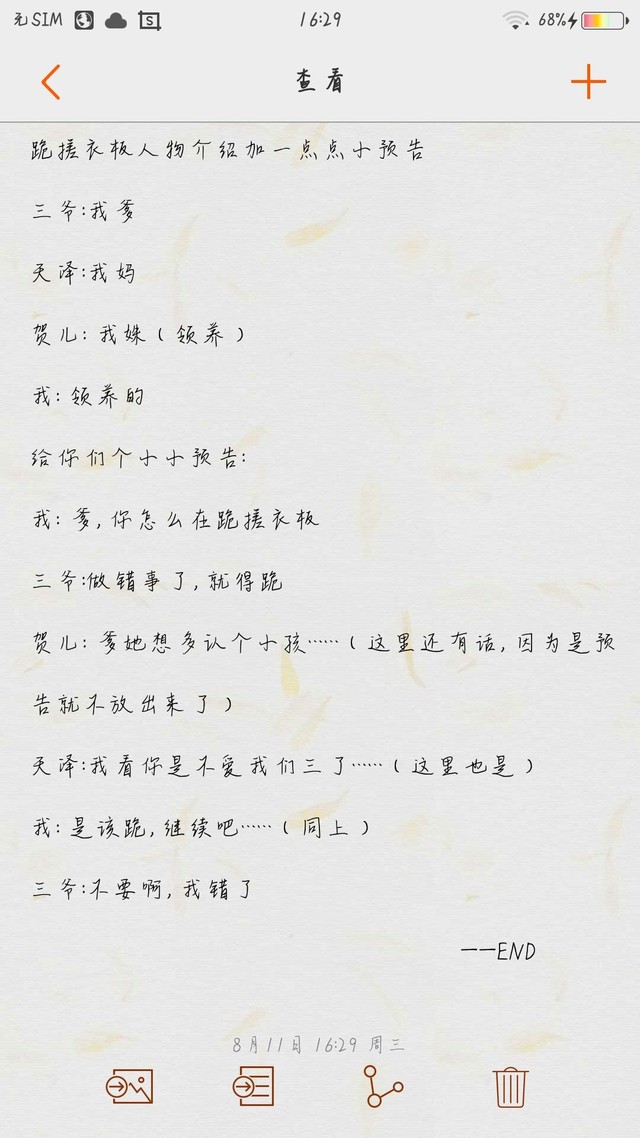 无SIM 16:29 68%
查看
跪搓衣板人物介绍加一点点小预告
三爷:我爹
天泽:我妈
贺儿:我姝(领养)
我:领养的
给你们个小小预告:
我:爹,你怎么在跪搓衣板
三爷:做错事了,就得跪
贺儿:爹她想多认个小孩……(这里还有话,因为是预
告就不放出来了)
天泽:我看你是不爱我们三了……(这里也是)
我:是该跪,继续吧……(同上)
三爷:不要啊,我错了
——END
8月11日 16:29 周三